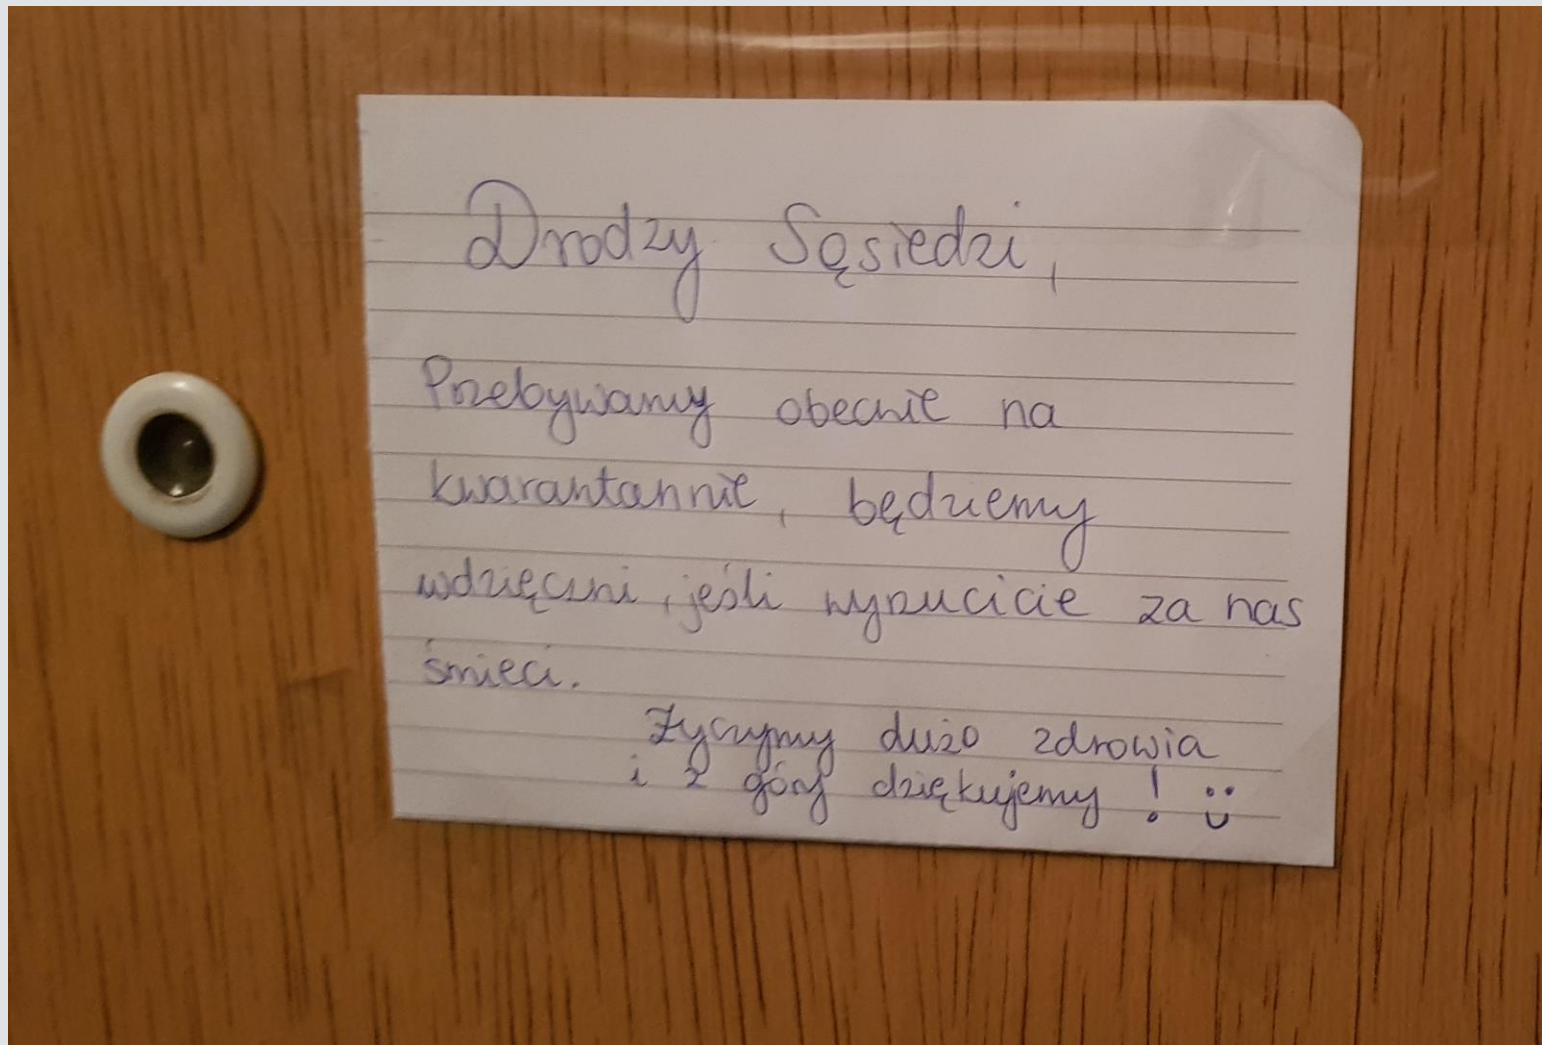 Drodzy Sąsiedzi,
Przebywamy obecnie na
kwarantannie, będziemy
wdzięczni, jeśli wyrzucicie za nas
śmieci.
Życzymy dużo zdrowia
i z góry dziękujemy! :)